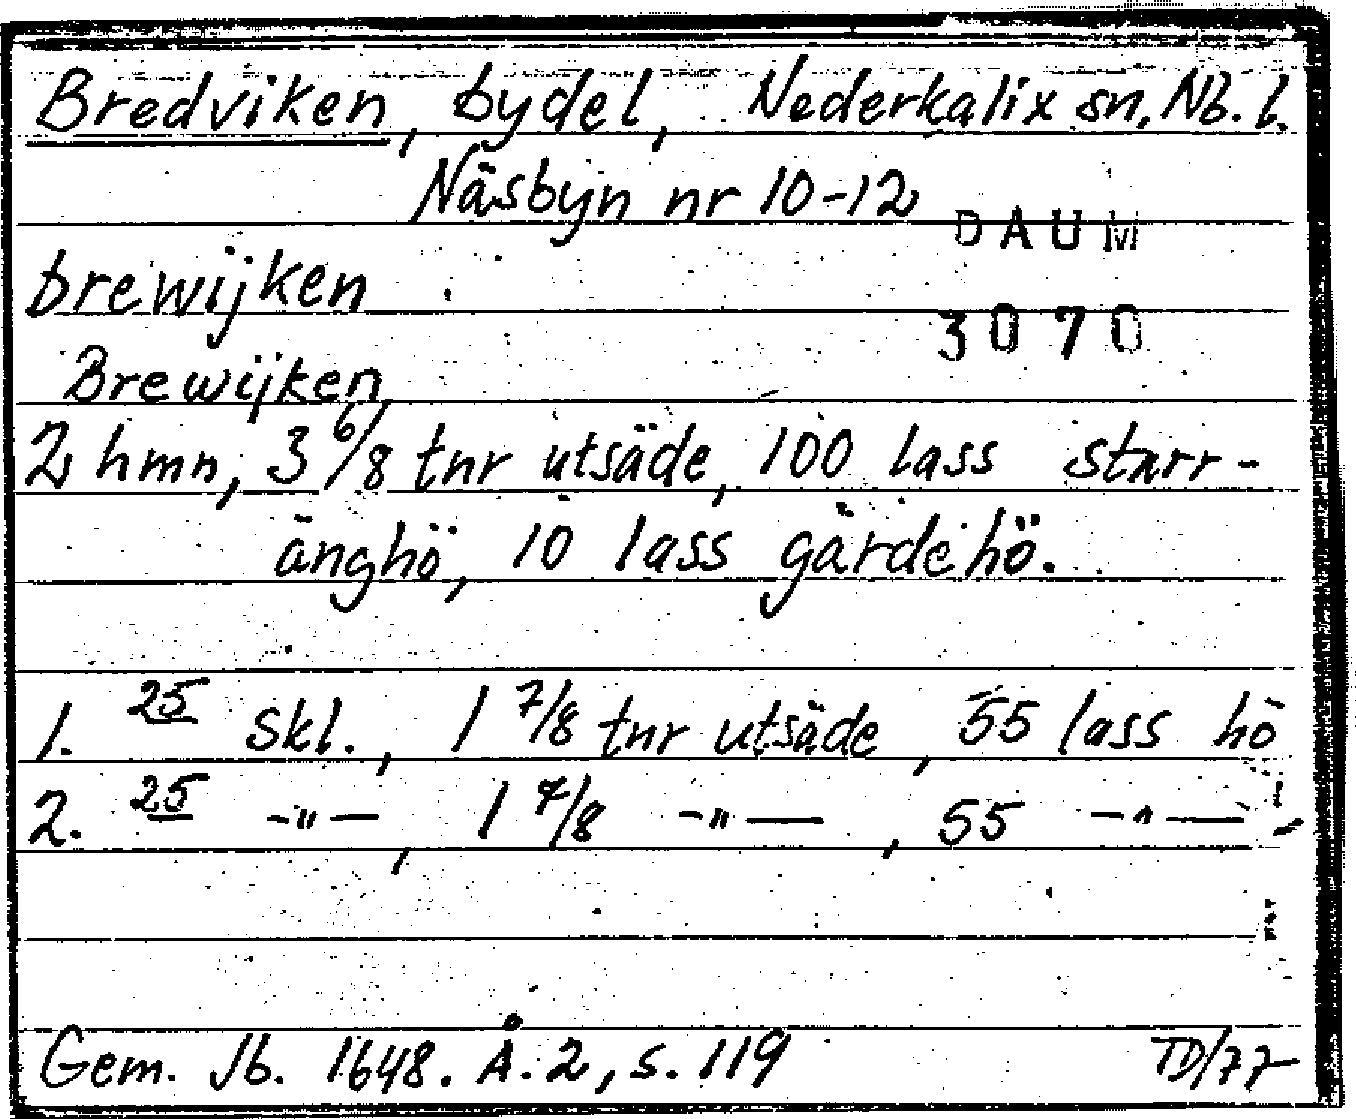 Bredviken, bydel, Nederkalix sn, Nb. l.
Näsbyn nr 10-12
DAUM
brewijken
3070
Brewijken
2 hmn, 3 6/8 tnr utsäde, 100 lass starr-
änghö, 10 lass gärdehö.
1. 25 skl., 1 7/8 tnr utsäde, 55 lass hö
2. 25 -"-, 1 7/8 -"-, 55 -"-
Gem. Jb. 1648. Å. 2, s. 119 TD/77